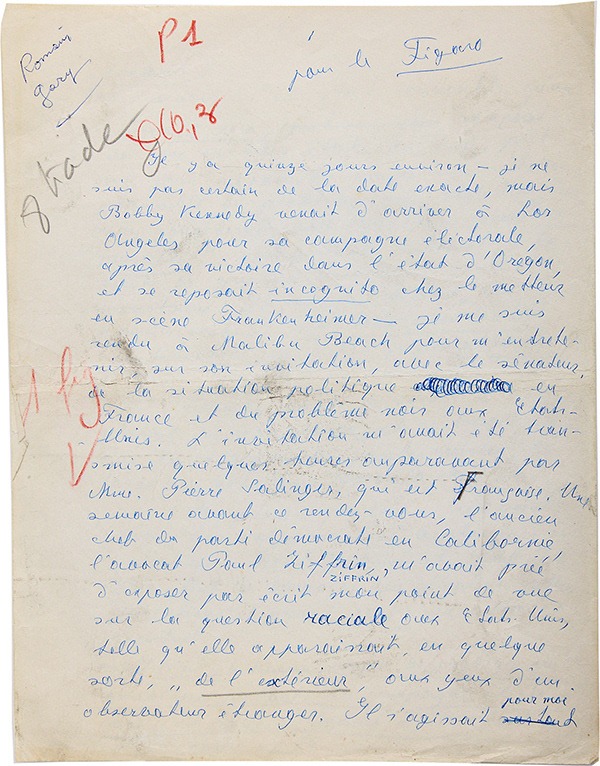 Romain
Gary
P1
pour le Figaro
8 kade
g10,3
Il y a quinze jours environ — je ne
suis pas certain de la date exacte, mais
Bobby Kennedy venait d'arriver à Los
Angeles pour sa campagne électorale,
après sa victoire dans l'état d'Oregon,
et se reposait incognito chez le metteur
en scène Frankenheimer — je me suis
rendu à Malibu Beach pour m'entrete-
nir sur son invitation, avec le sénateur,
de la situation politique en
France et du problème noir aux Etats-
Unis. L'invitation m'avait été tran-
smise quelques heures auparavant par
Mme. Pierre Salinger, qui est Française. Une
semaine avant ce rendez-vous, l'ancien
chef du parti démocrate en Californie,
l'avocat Paul Ziffrin, m'avait prié
ZIFFRIN
d'exposer par écrit mon point de vue
sur la question raciale aux Etats-Unis,
telle qu'elle apparaissait, en quelque
sorte, „de l'extérieur", aux yeux d'un
observateur étranger. Il s'agissait pour moi
surtout
1 fig